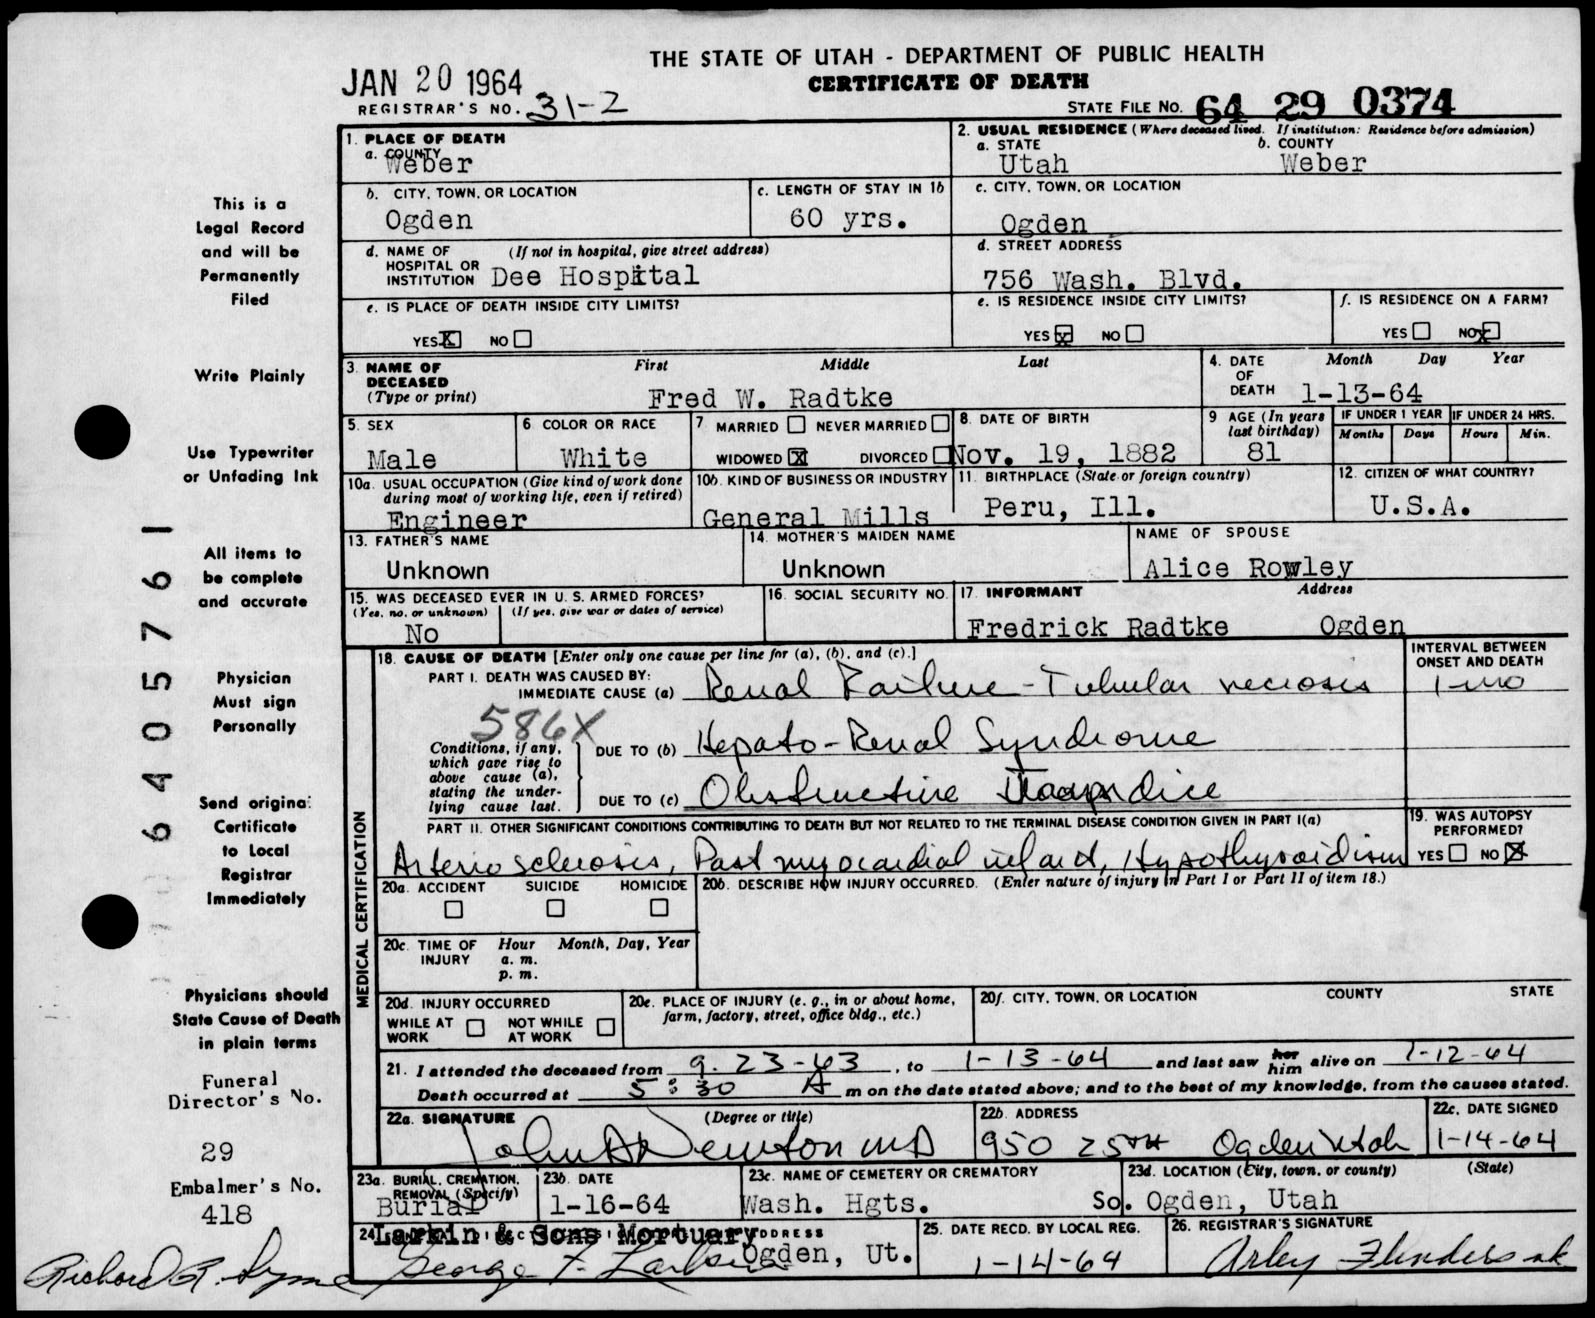 THE STATE OF UTAH - DEPARTMENT OF PUBLIC HEALTH
JAN 20 1964
CERTIFICATE OF DEATH
REGISTRAR'S NO. 31-2
STATE FILE NO. 64 29 0374
1. PLACE OF DEATH
a. COUNTY
Weber
2. USUAL RESIDENCE (Where deceased lived. If institution: Residence before admission)
a. STATE
Utah
b. COUNTY
Weber
b. CITY, TOWN, OR LOCATION
Ogden
c. LENGTH OF STAY IN 1b
60 yrs.
c. CITY, TOWN, OR LOCATION
Ogden
d. NAME OF HOSPITAL OR INSTITUTION (If not in hospital, give street address)
Dee Hospital
d. STREET ADDRESS
756 Wash. Blvd.
e. IS PLACE OF DEATH INSIDE CITY LIMITS?
YES X NO
e. IS RESIDENCE INSIDE CITY LIMITS?
YES X NO
f. IS RESIDENCE ON A FARM?
YES NO X
3. NAME OF DECEASED (Type or print)
First Middle Last
Fred W. Radtke
4. DATE OF DEATH
Month Day Year
1-13-64
5. SEX
Male
6. COLOR OR RACE
White
7 MARRIED NEVER MARRIED
WIDOWED X DIVORCED
8. DATE OF BIRTH
Nov. 19, 1882
9 AGE (In years last birthday)
81
IF UNDER 1 YEAR
Months Days
IF UNDER 24 HRS.
Hours Min.
10a. USUAL OCCUPATION (Give kind of work done during most of working life, even if retired)
Engineer
10b. KIND OF BUSINESS OR INDUSTRY
General Mills
11. BIRTHPLACE (State or foreign country)
Peru, Ill.
12. CITIZEN OF WHAT COUNTRY?
U.S.A.
13. FATHER'S NAME
Unknown
14. MOTHER'S MAIDEN NAME
Unknown
NAME OF SPOUSE
Alice Rowley
15. WAS DECEASED EVER IN U. S. ARMED FORCES?
(Yes, no, or unknown) (If yes, give war or dates of service)
No
16. SOCIAL SECURITY NO.
17. INFORMANT Address
Fredrick Radtke Ogden
MEDICAL CERTIFICATION
18. CAUSE OF DEATH [Enter only one cause per line for (a), (b), and (c).]
INTERVAL BETWEEN ONSET AND DEATH
PART I. DEATH WAS CAUSED BY:
IMMEDIATE CAUSE (a) Renal Failure - Tubular necrosis 1-mo
586X
Conditions, if any, which gave rise to above cause (a), stating the underlying cause last.
DUE TO (b) Hepato-Renal Syndrome
DUE TO (c) Obstructive Jaundice
PART II. OTHER SIGNIFICANT CONDITIONS CONTRIBUTING TO DEATH BUT NOT RELATED TO THE TERMINAL DISEASE CONDITION GIVEN IN PART I(a)
Arteriosclerosis, Past myocardial infarct, Hypothyroidism
19. WAS AUTOPSY PERFORMED?
YES NO X
20a. ACCIDENT SUICIDE HOMICIDE
20b. DESCRIBE HOW INJURY OCCURRED. (Enter nature of injury in Part I or Part II of item 18.)
20c. TIME OF INJURY Hour Month, Day, Year
a. m.
p. m.
20d. INJURY OCCURRED
WHILE AT WORK NOT WHILE AT WORK
20e. PLACE OF INJURY (e. g., in or about home, farm, factory, street, office bldg., etc.)
20f. CITY, TOWN, OR LOCATION COUNTY STATE
21. I attended the deceased from 9-23-63, to 1-13-64 and last saw her him alive on 1-12-64
Death occurred at 5:30 A m on the date stated above; and to the best of my knowledge, from the causes stated.
22a. SIGNATURE (Degree or title)
John A Newton MD
22b. ADDRESS
950 25TH Ogden Utah
22c. DATE SIGNED
1-14-64
23a. BURIAL, CREMATION, REMOVAL (Specify)
Burial
23b. DATE
1-16-64
23c. NAME OF CEMETERY OR CREMATORY
Wash. Hgts.
23d. LOCATION (City, town, or county) (State)
So. Ogden, Utah
24.
Larkin & Sons Mortuary
George F. Larkin
ADDRESS
Ogden, Ut.
25. DATE RECD. BY LOCAL REG.
1-14-64
26. REGISTRAR'S SIGNATURE
Arley Flinders
This is a
Legal Record
and will be
Permanently
Filed
Write Plainly
Use Typewriter
or Unfading Ink
All items to
be complete
and accurate
Physician
Must sign
Personally
Send original
Certificate
to Local
Registrar
Immediately
Physicians should
State Cause of Death
in plain terms
Funeral
Director's No.
29
Embalmer's No.
418
Richard R.
6405761